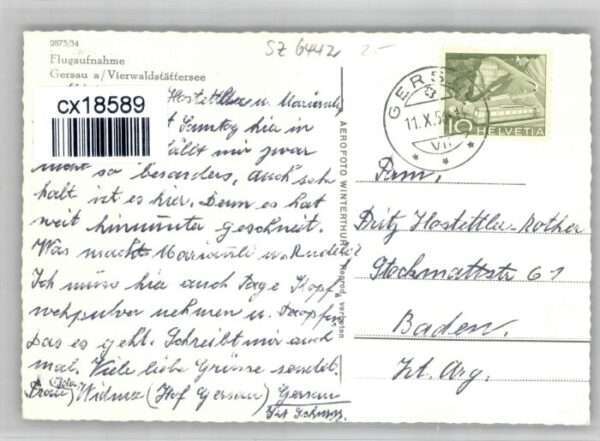 9875/34
SZ 6442 2.-
Flugaufnahme
Gersau a/Vierwaldstättersee
cx18589
Hostettler u. Mariandli
t Sonntag hia in
fällt mir zwar
nicht so besonders, auch sehr
kalt ist es hier. Denn es hat
weit hinunter geschneit.
Was macht Marianli u. Ruedeli?
Ich muss hia auch tage Kopf
wehpulver nehmen u. Tropfen
das es geht. Schreibt mir auch
mal. Viele liebe Grüsse sendet.
Widmer (Hof Gersau) Gersau
Kt. Schwyz.
AEROFOTO WINTERTHUR
Reprod. verboten
GERSAU
11.X.5
VII
10 HELVETIA
Fam,
Fritz Hostettler-Rother
Stockmattstr 61
Baden.
Kt. Arg.